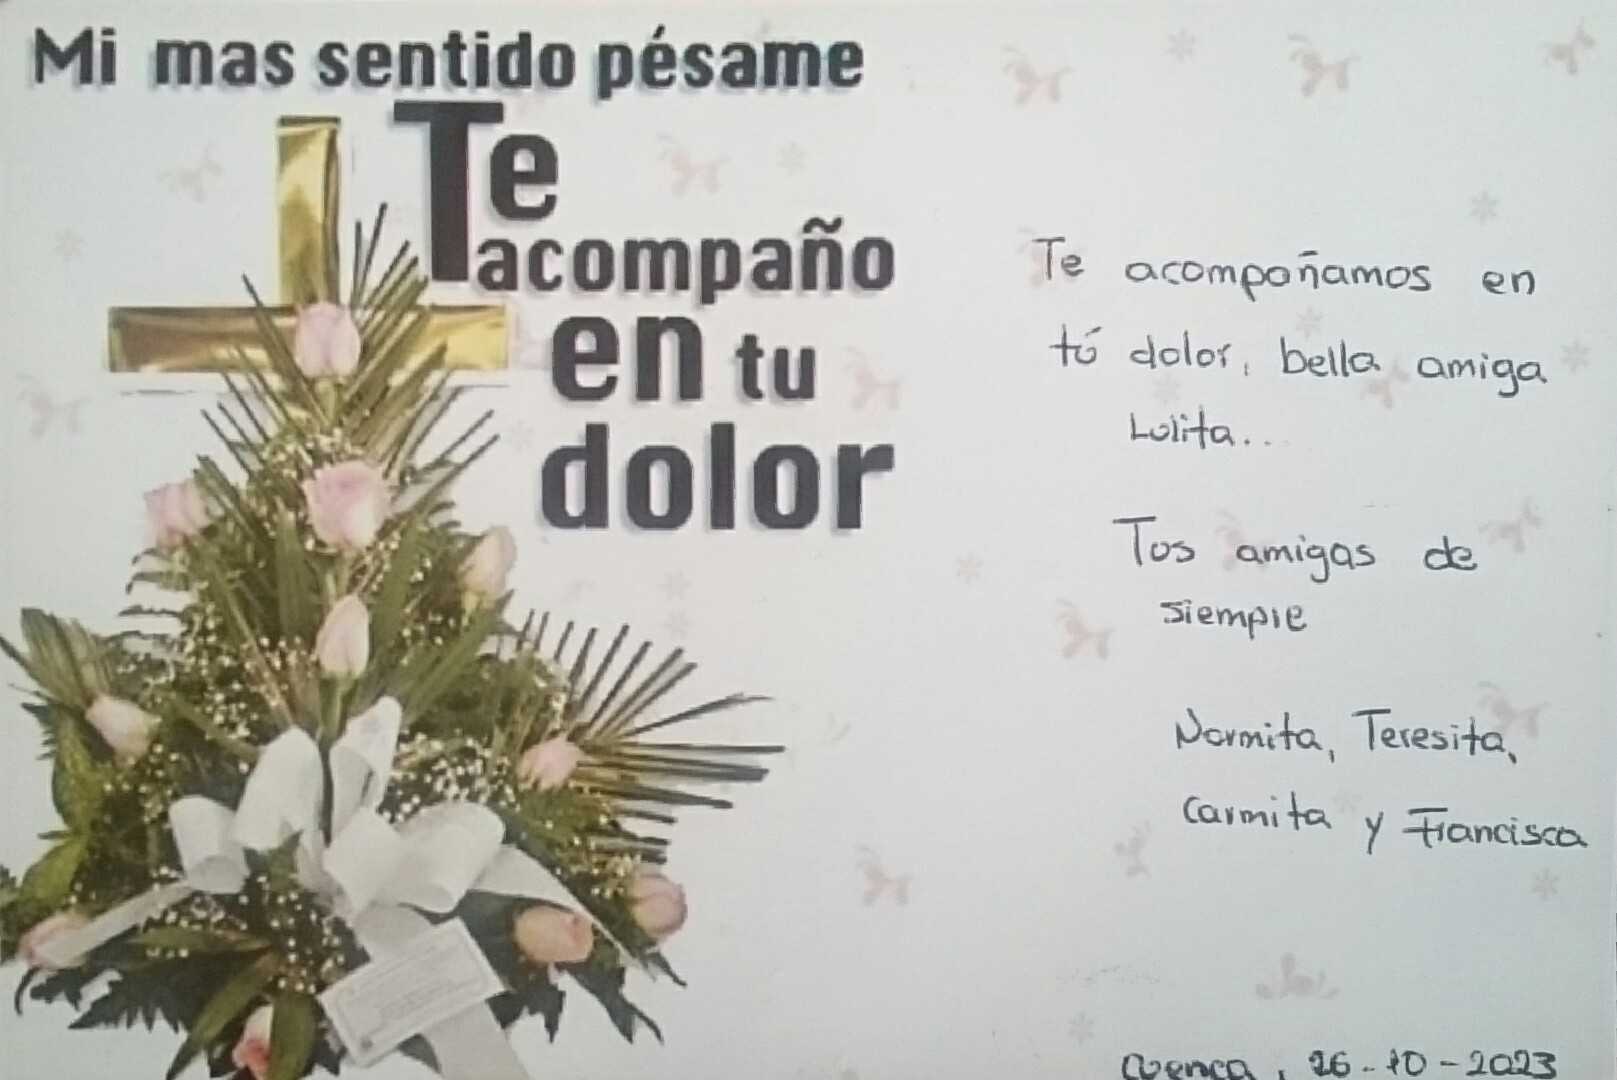 Mi mas sentido pésame
Te
acompaño
en tu
dolor
Te acompañamos en
tú dolor, bella amiga
Lolita...
Tus amigas de
siempre
Normita, Teresita,
Carmita y Francisca
Cuenca, 26-10-2023